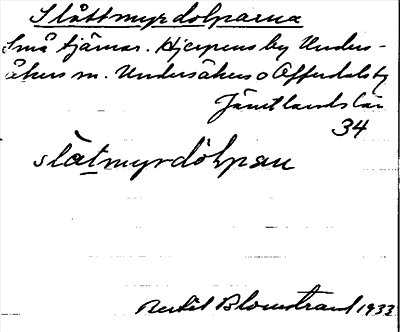 Slåttmyrdölparna
Små tjärnar. Hjerpens by Unders-
åkers sn. Undersåkers o Offerdals tg
Jämtlands län
34
slåtmyrdöĺpan
Bertil Blomstrand 1933